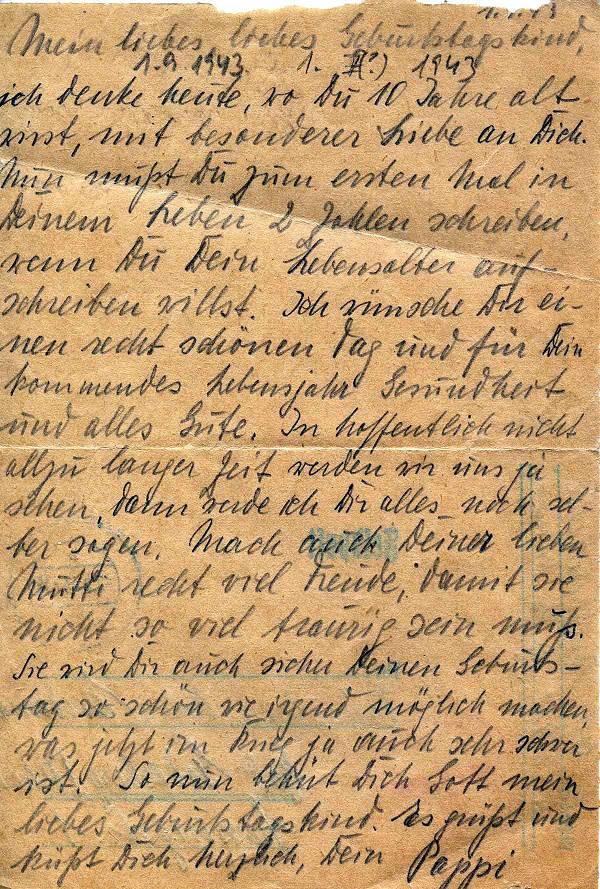 1.9.43
Mein liebes, liebes Geburtstagskind,
1.9.1943. 1. II?) 1943
ich denke heute, wo Du 10 Jahre alt
wirst, mit besonderer Liebe an Dich.
Nun mußt Du zum ersten Mal in
Deinem Leben 2 Zahlen schreiben,
wenn Du Dein Lebensalter auf-
schreiben willst. Ich wünsche Dir ei-
nen recht schönen Tag und für Dein
kommendes Lebensjahr Gesundheit
und alles Gute. In hoffentlich nicht
allzu langer Zeit werden wir uns ja
sehen, dann werde ich Dir alles noch sel-
ber sagen. Mach auch Deiner lieben
Mutti recht viel Freude, damit sie
nicht so viel traurig sein muß.
Sie wird Dir auch sicher Deinen Geburts-
tag so schön wie irgend möglich machen,
was jetzt im Krieg ja auch sehr schwer
ist. So nun behüt Dich Gott mein
liebes Geburtstagskind. Es grüßt und
küßt Dich herzlich, Dein Pappi